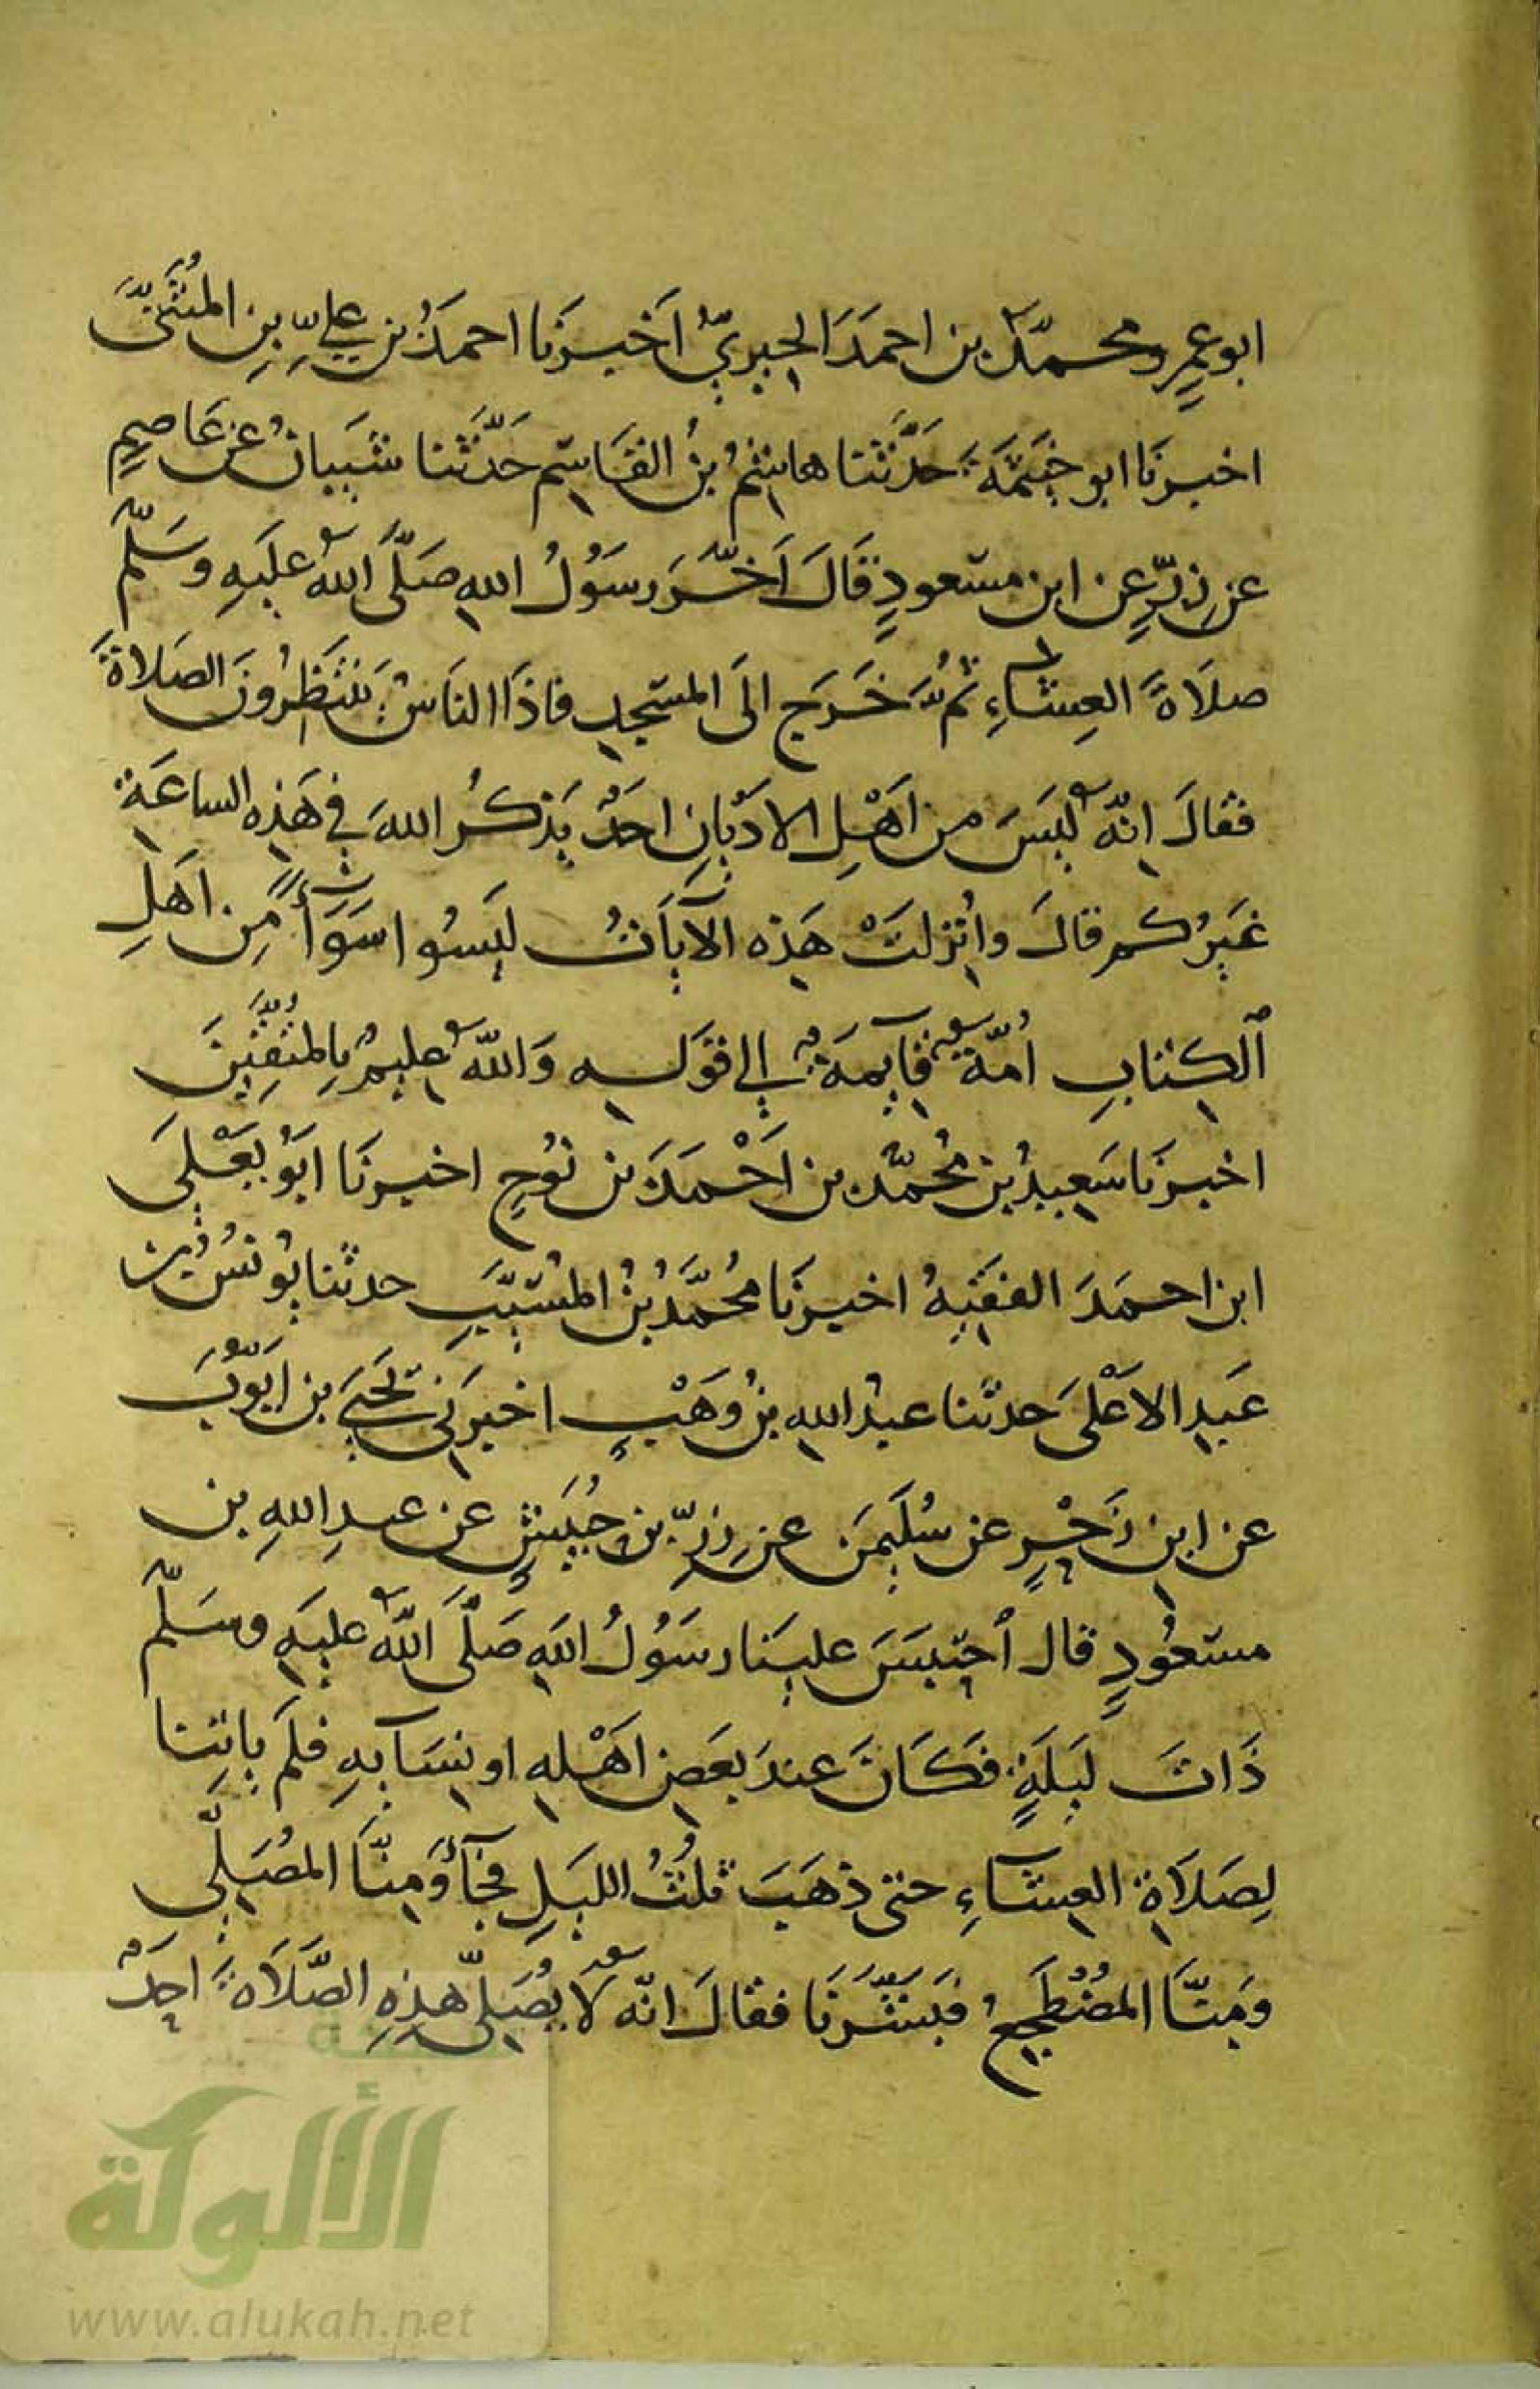 ابو عمرٍو محمّدُ بن احمَدَ الحِيريُّ اَخبرَنَا احمدُ بن عليِّ بنِ المُثَنَّى
اخبرَنَا ابو خيثمَةَ حَدَّثَنا هاشِمُ بنُ القَاسِم حَدَّثَنا شَيبانُ عن عَاصِمٍ
عن زِرٍّ عن ابن مسعودٍ قَالَ اَخَّرَ رسَوُلُ اللهِ صَلَّى اللهُ عليَهِ وسَلّمَ
صلاَةَ العِشاءِ ثمُّ خَرَج الَى المسَجدِ فاذَا الناسُ يَنتَظِرُونَ الصَلاةَ
فقالَ انّهُ ليسَ من اَهْلِ الادَيانِ احَدٌ يَذكرُ اللهَ في هَذِه الساعَةِ
غيرُكم قالَ وأُنزِلَتْ هَذِه الآيَاتُ ليَسُوا سَوَآءً مِن اَهَلِ
ٱلكِتابِ اُمّةٌ قآيِمَةٌ الي قوَلِه وَاللهُ عليمٌ بِالمُتَّقِينَ
اخبرَنَا سَعِيدُ بن مُحمّد بن اَحْمَدَ بن نوُحٍ اخبرَنَا ابَوُ يَعْلَى
ابن احمَدَ الفقيهُ اخبرَنَا مُحَمَّدُ بنُ المُسَيَّبِ حدثنا يوُنسُ بنُ
عَبدِ الاعَلى حدثنا عبدُ اللهِ بنُ وَهْبٍ اخبرَني يَحْيَى بن اَيّوُبَ
عن ابن زَحْرٍ عن سُلَيمَن عن زِرِّ بن حُبَيشٍ عن عبدِ اللهِ بن
مسعوُدٍ قال ٱحتبَسَ علينَا رسَوُلُ اللهِ صَلَّى اللهُ عليَهِ وسَلّمَ
ذَاتَ ليَلَةٍ فكَانَ عندَ بعَضِ اهَْلهِ او نِسَآيهِ فلَم ياتِنا
لِصَلاَةِ العِشاءِ حتى ذهَبَ ثلُثُ الليَلِ فجَآءَ ومِنَّا المُصَلّي
ومِنَّا المُضْطَجِعُ فبَشَّرَنَا فقالَ انّه لا يُصَلّي هذِهِ الصَّلاَةَ احَدٌ
الألوكة
www.alukah.net